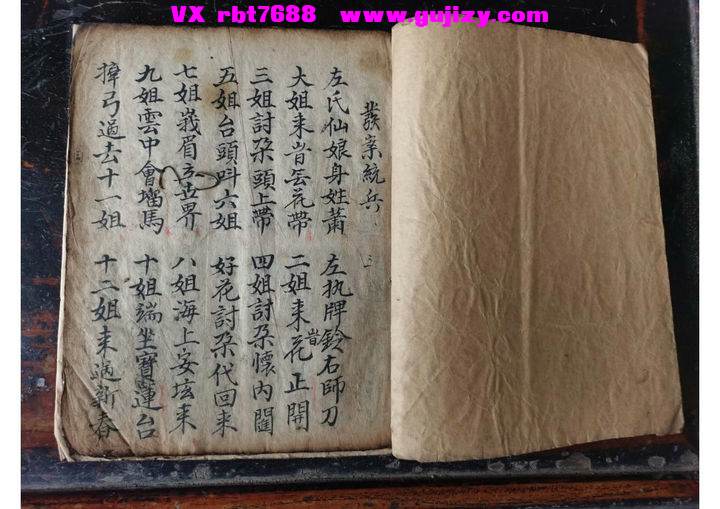 VX rbt7688 www.gujizy.com
發案統兵
左氏仙娘身姓萧 左执牌鈴右師刀
大姐来旹芸花帶 二姐来旹花正開
三姐討朶頭上帶 四姐討朶懷內
五姐台頭呌六姐 好花討朶代回来
七姐峩眉立世界 八姐海上安垓来
九姐雲中會馬 十姐端坐寳蓮台
弓過去十一姐 十二姐来過新春